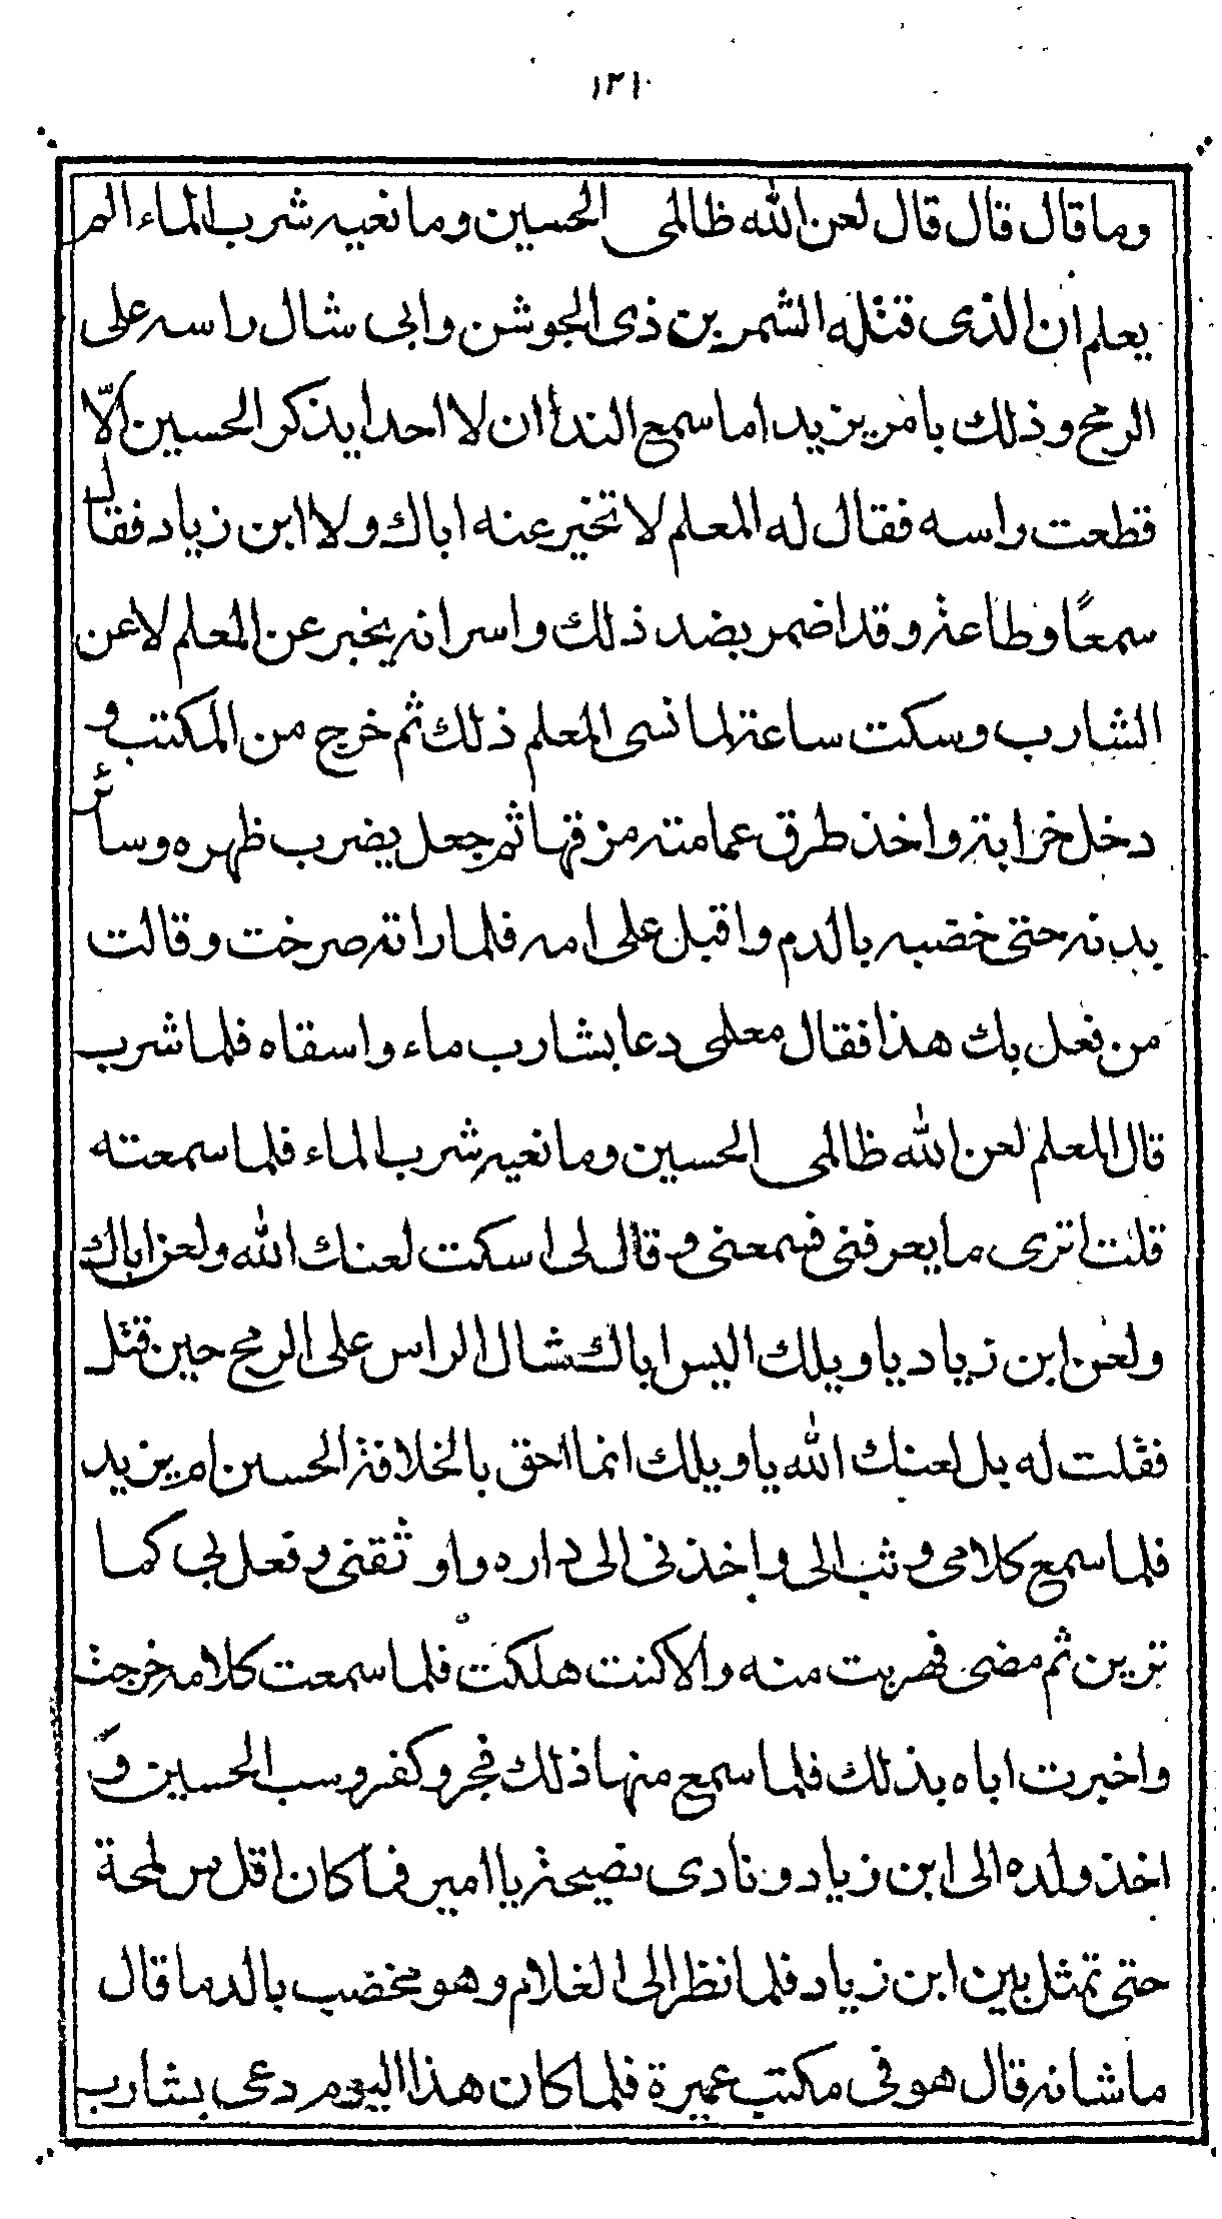 ١٣١٠
وما قال قال قال لعن الله ظالمى الحسين ومانعيه شرب الماء الم
يعلم ان الذى قتله الشمر بن ذى الجوشن وابى شال راسه على
الرمح وذلك بامر يزيد اما سمع الندأ ان لا احدا يذكر الحسين الّا
قطعت راسه فقال له المعلم لا تخبر عنه اباك ولا ابن زياد فقال
سمعًا وطاعة وقد اضمر بضد ذلك واسر انه يخبر عن المعلم لا عن
الشارب وسكت ساعة لما نسى المعلم ذلك ثم خرج من المكتب و
دخل خرابة واخذ طرق عمامته مزقها ثم جعل يضرب ظهره وسائر
بدنه حتى خضبه بالدم واقبل على امه فلما راته صرخت وقالت
من فعل بك هذا فقال معلمى دعا بشارب ماء واسقاه فلما شرب
قال المعلم لعن الله ظالمى الحسين ومانعيه شرب الماء فلما سمعته
قلت اترى ما يعرفنى فسمعنى وقال لى اسكت لعنك الله ولعن اباك
ولعن ابن زياد يا ويلك اليس اباك شال الراس على الرمح حين قتل
فقلت له بل لعنك الله يا ويلك انما احق بالخلافة الحسين ام يزيد
فلما سمع كلامى وثب الى واخذنى الى داره واوثقنى وفعل بى كما
ترين ثم مضى فهربت منه والا كنت هلكت فلما سمعت كلامه خرجت
واخبرت اباه بذلك فلما سمع منها ذلك فجر وكفر وسب الحسين و
اخذ ولده الى ابن زياد ونادى نصيحة يا امير فما كان اقل من لمحة
حتى تمثل بين ابن زياد فلما نظر الى الغلام وهو مخضب بالدما قال
ما شانه قال هو فى مكتب عميرة فلما كان هذا اليوم دعى بشارب